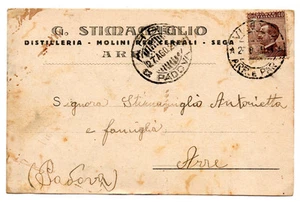 G. STIMAMIGLIO
DISTILLERIA - MOLINI PER CEREALI - SEGA
ARRE
Signora Stimamiglio Antonietta
e famiglia
Arre
(Padova)